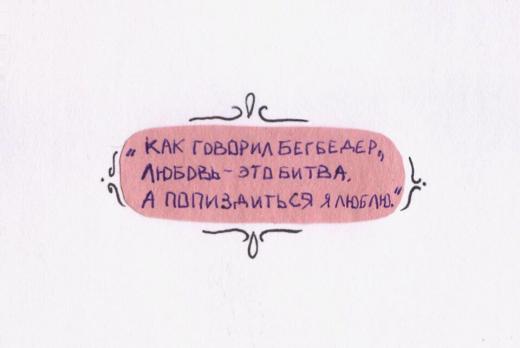 „КАК ГОВОРИЛ БЕГБЕДЕР,
ЛЮБОВЬ - ЭТО БИТВА.
А ПОПИЗДИТЬСЯ Я ЛЮБЛЮ.“